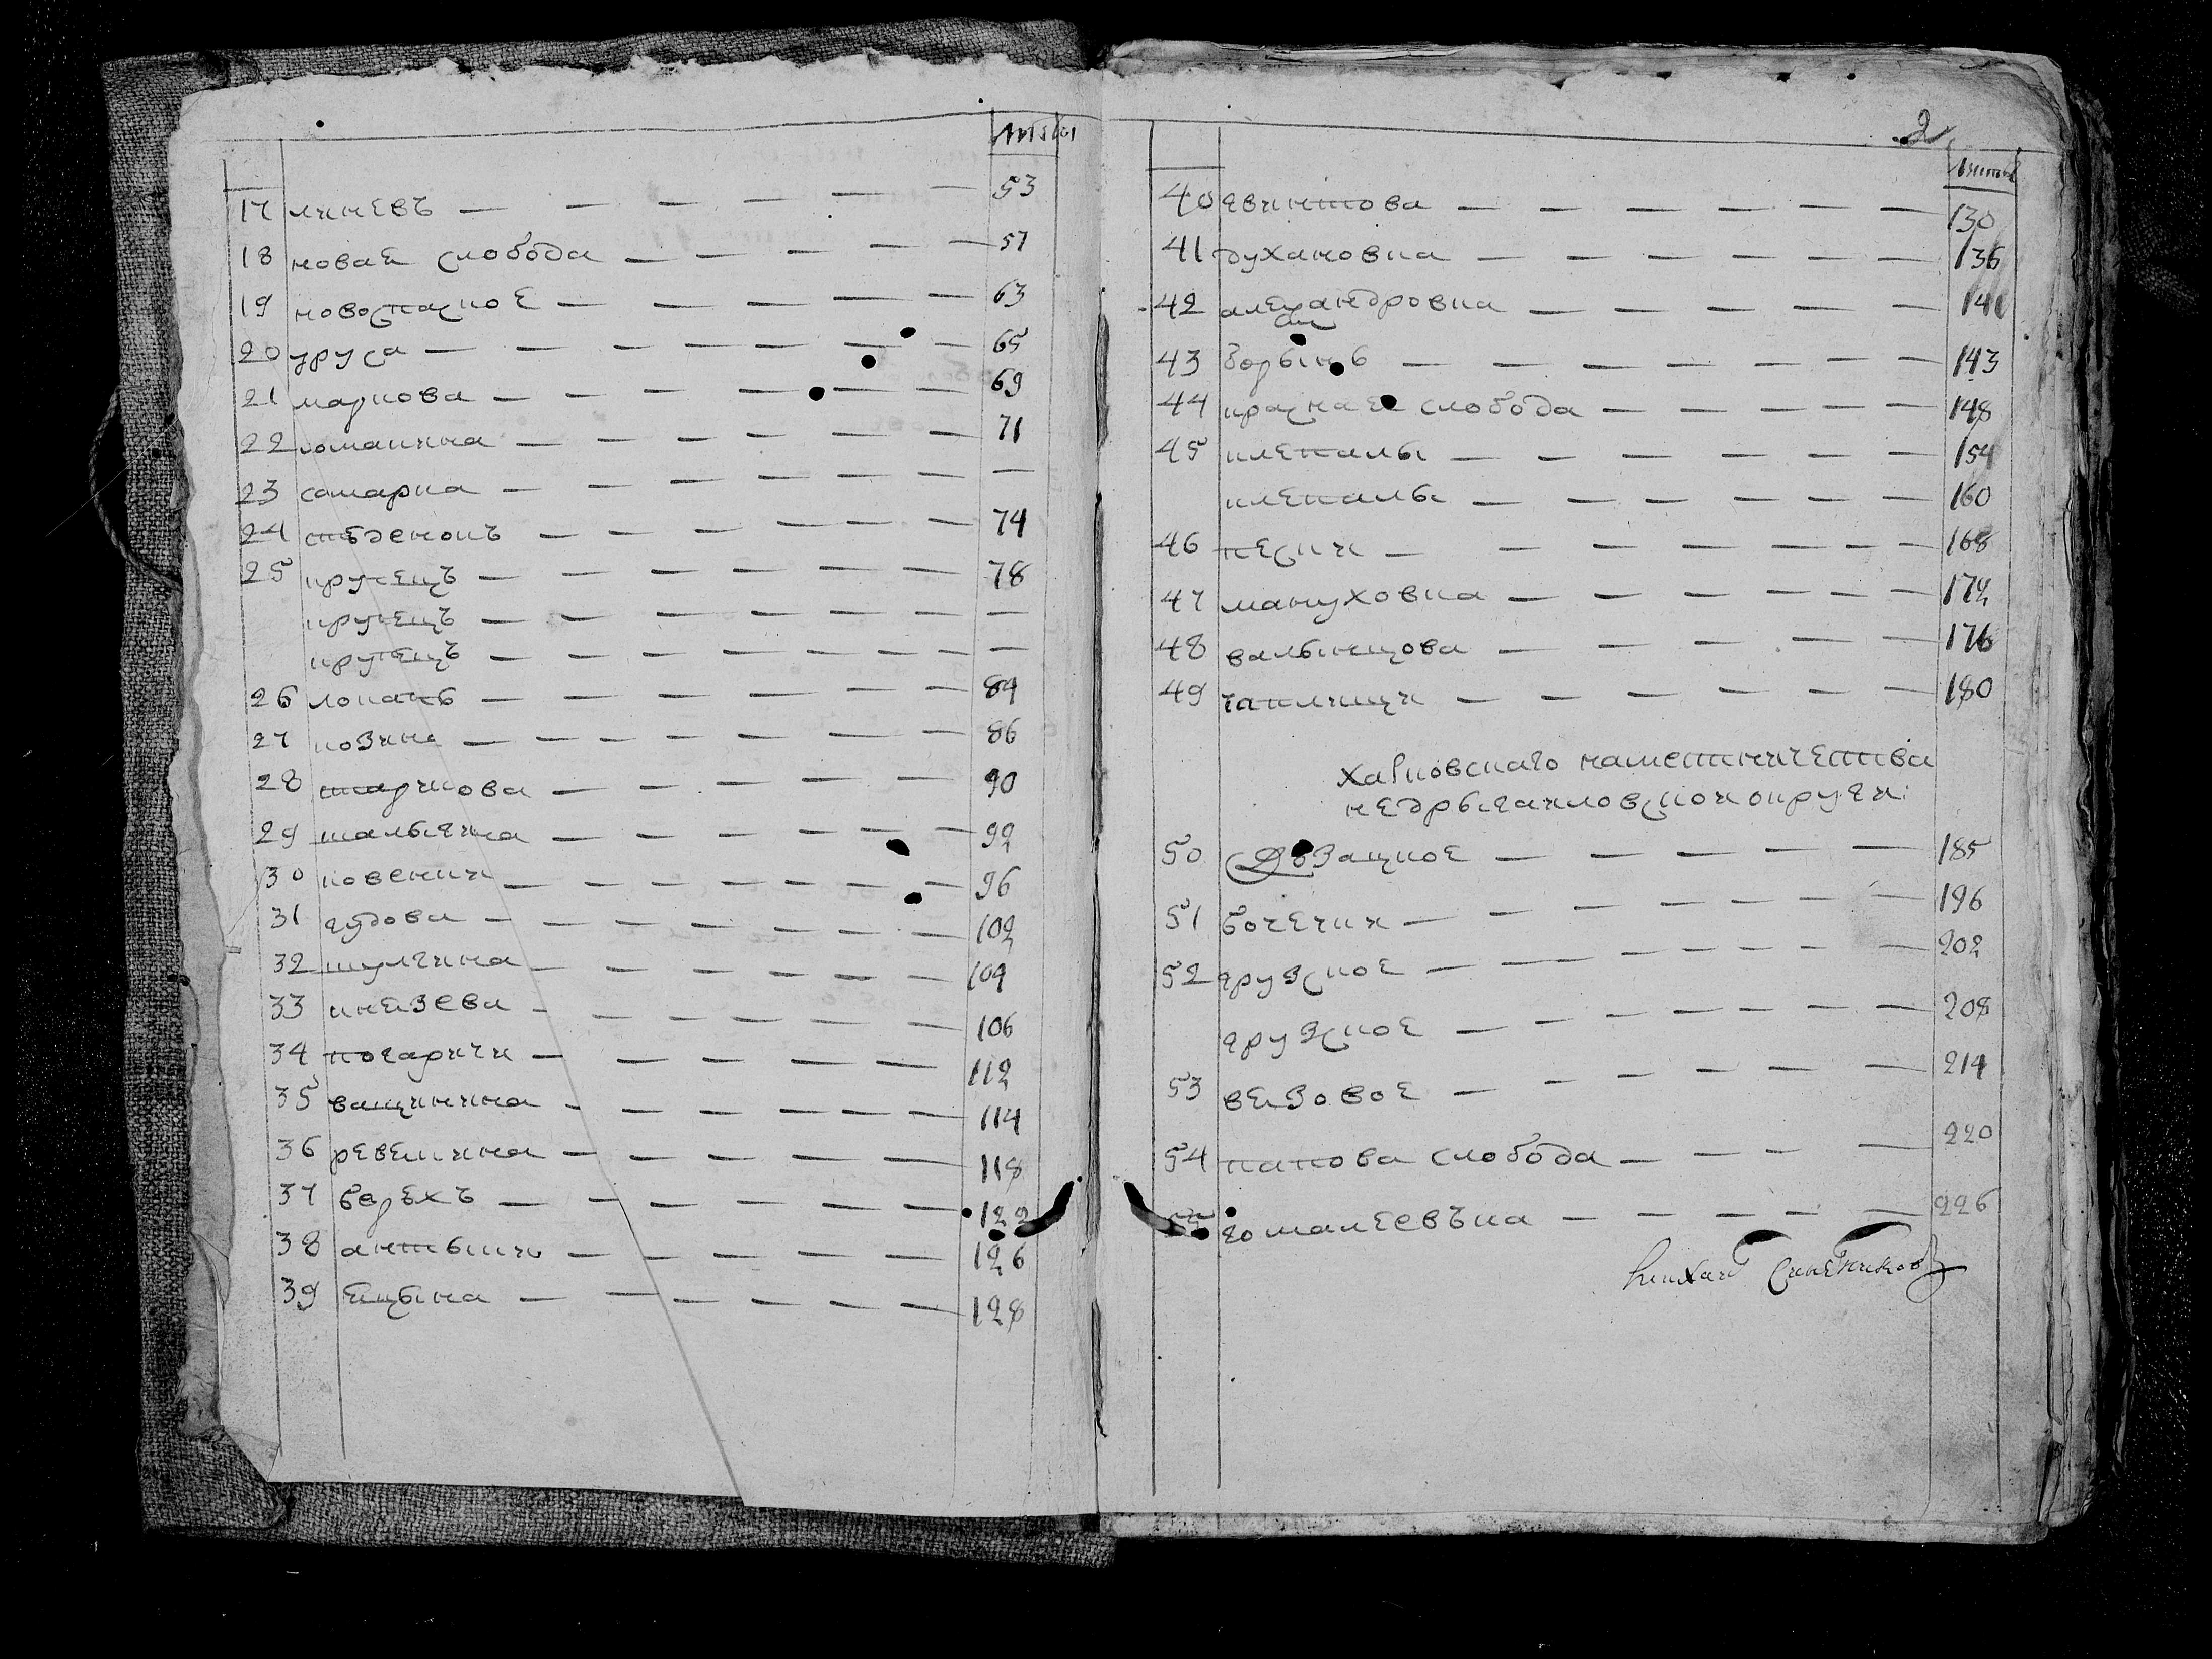 листы
17 линевъ 53
18 новая слобода 57
19 новоспаское 63
20 уруса 65
21 маркова 69
22 юмаккина 71
23 самарка —
24 студенокъ 74
25 крупецъ 78
крупецъ —
крупецъ —
26 лопань 84
27 козина 86
28 старикова 90
29 шалыгина 92
30 ковенки 96
31 гудова 102
32 шулгина 104
33 князева 106
34 погаричи 112
35 ващинина 114
36 ревякина 118
37 берюхъ 122
38 антыки 126
39 яцына 128
2
листы
40 явинтова 130
41 духановка 136
42 александровка 141
43 ворьинь 143
44 красная слобода 148
45 клепалы 154
клепалы 160
46 пески 168
47 мануховка 172
48 валынцова 176
49 чаплищи 180
харковскаго наместничества
недрыгаиловской округи:
50 Двзацкое 185
51 бочечки 196
52 грузское 202
грузское 208
53 вязовое 214
54 папова слобода 220
гамалеевъка 226